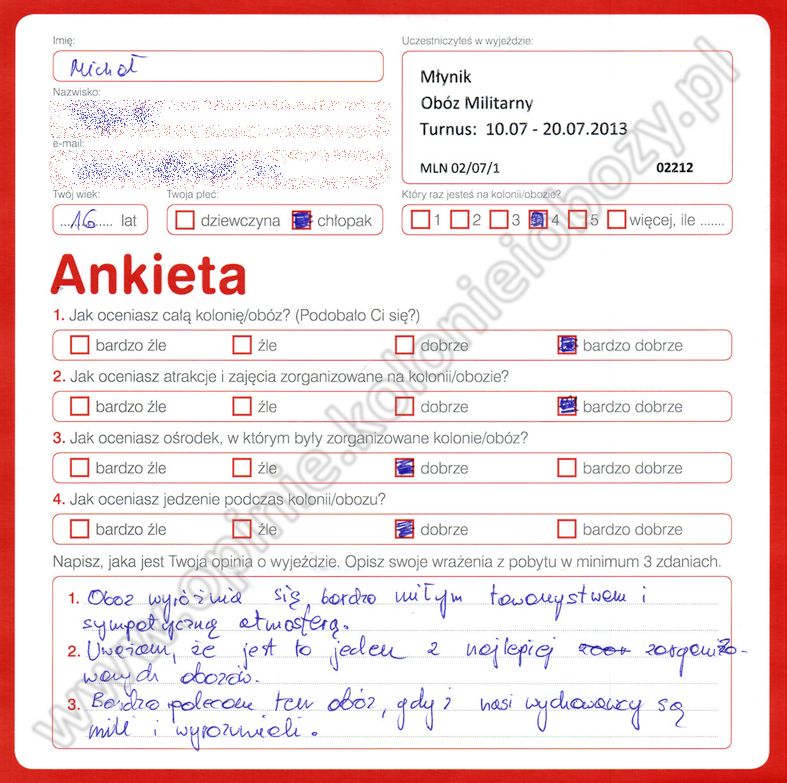 Imię:
Michał
Uczestniczyłeś w wyjeździe:
Młynik
Obóz Militarny
Turnus: 10.07 - 20.07.2013
MLN 02/07/1 02212
Nazwisko:
e-mail:
Twój wiek:
...16..... lat
Twoja płeć:
dziewczyna chłopak
Który raz jesteś na kolonii/obozie?
1 2 3 4 5 więcej, ile .......
Ankieta
1. Jak oceniasz całą kolonię/obóz? (Podobało Ci się?)
bardzo źle źle dobrze bardzo dobrze
2. Jak oceniasz atrakcje i zajęcia zorganizowane na kolonii/obozie?
bardzo źle źle dobrze bardzo dobrze
3. Jak oceniasz ośrodek, w którym były zorganizowane kolonie/obóz?
bardzo źle źle dobrze bardzo dobrze
4. Jak oceniasz jedzenie podczas kolonii/obozu?
bardzo źle źle dobrze bardzo dobrze
Napisz, jaka jest Twoja opinia o wyjeździe. Opisz swoje wrażenia z pobytu w minimum 3 zdaniach.
1. Oboz wyróżnia się bardzo miłym towarzystwem i
sympatyczną atmosferą.
2. Uważam, że jest to jeden z najlepiej zorganizo-
wanych obozów.
3. Bardzo polecam ten obóz, gdyż nasi wychowawcy są
mili i wyrozumieli.
www.opinie.kolonieiobozy.pl